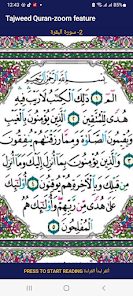 12:43
Tajweed Quran-zoom feature
2- سورة البقرة
بِسْمِ اللَّهِ الرَّحْمَٰنِ الرَّحِيمِ
الٓمٓ ۝١ ذَٰلِكَ الْكِتَٰبُ لَا رَيْبَ فِيهِ
هُدًى لِّلْمُتَّقِينَ ۝٢ الَّذِينَ يُؤْمِنُونَ بِالْغَيْبِ
وَيُقِيمُونَ الصَّلَوٰةَ وَمِمَّا رَزَقْنَٰهُمْ يُنفِقُونَ
۝٣ وَالَّذِينَ يُؤْمِنُونَ بِمَا أُنزِلَ إِلَيْكَ وَمَا أُنزِلَ
مِن قَبْلِكَ وَبِالْآخِرَةِ هُمْ يُوقِنُونَ ۝٤ أُولَٰئِكَ
عَلَىٰ هُدًى مِّن رَّبِّهِمْ وَأُولَٰئِكَ هُمُ
الْمُفْلِحُونَ ۝٥
PRESS TO START READING انقر لبدأ القراءة